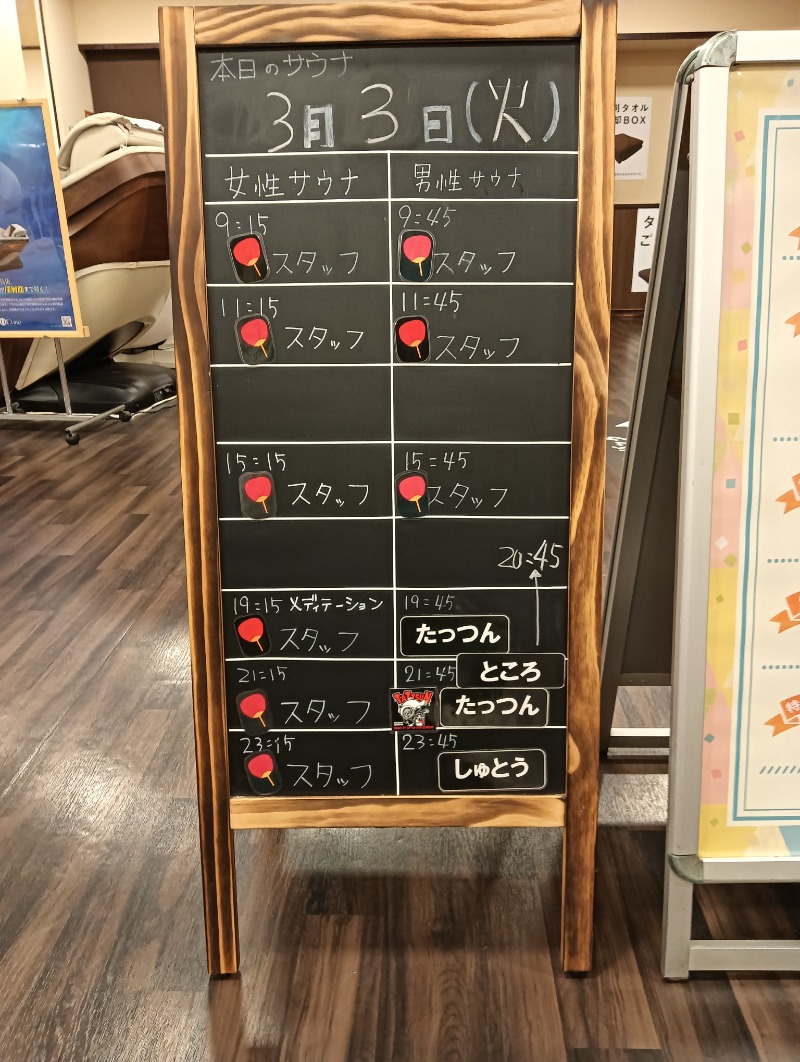 本日のサウナ
3月3日(火)
女性サウナ 男性サウナ
9:15 9:45
スタッフ スタッフ
11:15 11:45
スタッフ スタッフ
15:15 15:45
スタッフ スタッフ
20:45
19:15 メディテーション 19:45
スタッフ たっつん
21:15 21:45 ところ
スタッフ たっつん
23:15 23:45
スタッフ しゅとう
タオル
却BOX
タ
ご